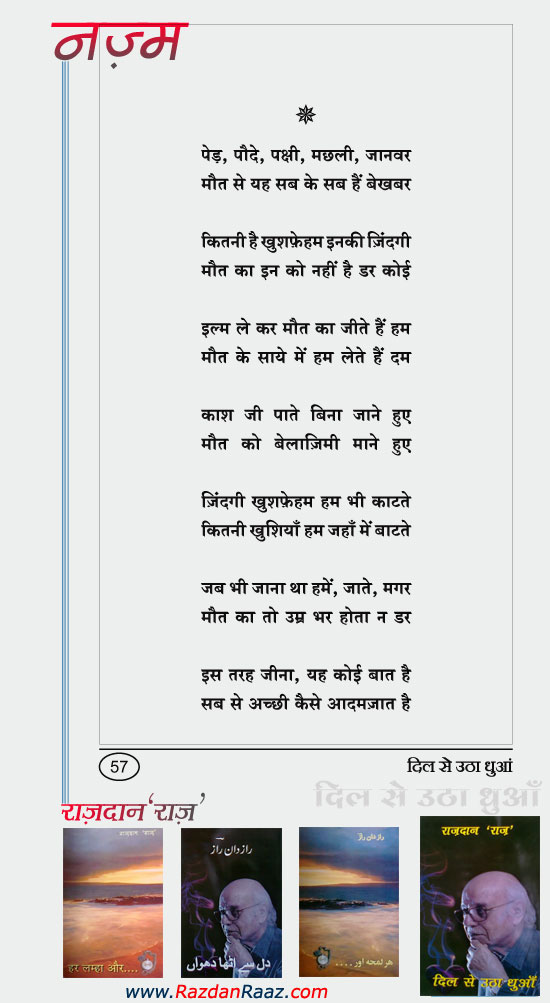 नज़्म
पेड़, पौदे, पक्षी, मछली, जानवर
मौत से यह सब के सब हैं बेखबर
कितनी है खुशफ़ेहम इनकी ज़िंदगी
मौत का इन को नहीं है डर कोई
इल्म ले कर मौत का जीते हैं हम
मौत के साये में हम लेते हैं दम
काश जी पाते बिना जाने हुए
मौत को बेलाज़िमी माने हुए
ज़िंदगी खुशफ़ेहम हम भी काटते
कितनी खुशियाँ हम जहाँ में बाटते
जब भी जाना था हमें, जाते, मगर
मौत का तो उम्र भर होता न डर
इस तरह जीना, यह कोई बात है
सब से अच्छी कैसे आदमज़ात है
57 दिल से उठा धुआं
दिल से उठा धुआँ
राज़दान 'राज़'
राज़दान 'राज़'
हर लम्हा और....
رازدان رازؔ
دل سے اٹھا دھواں
رازدان راز
ہر لمحہ اور ....
राज़दान 'राज़'
दिल से उठा धुआँ
www.RazdanRaaz.com